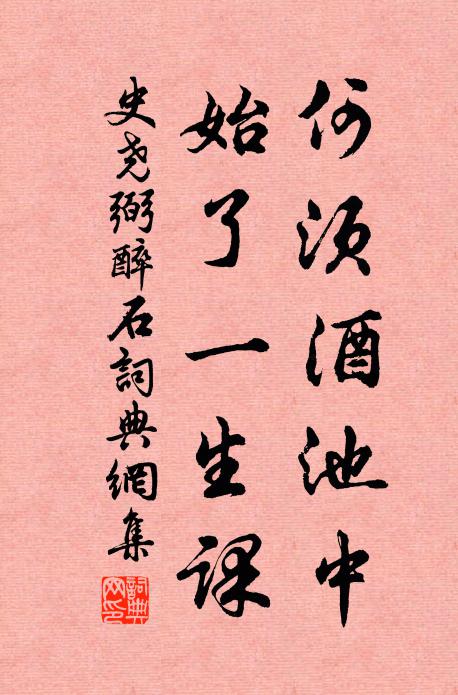 何须酒池中
始了一生課
史尧弼醉石詞典網集
詞典网印